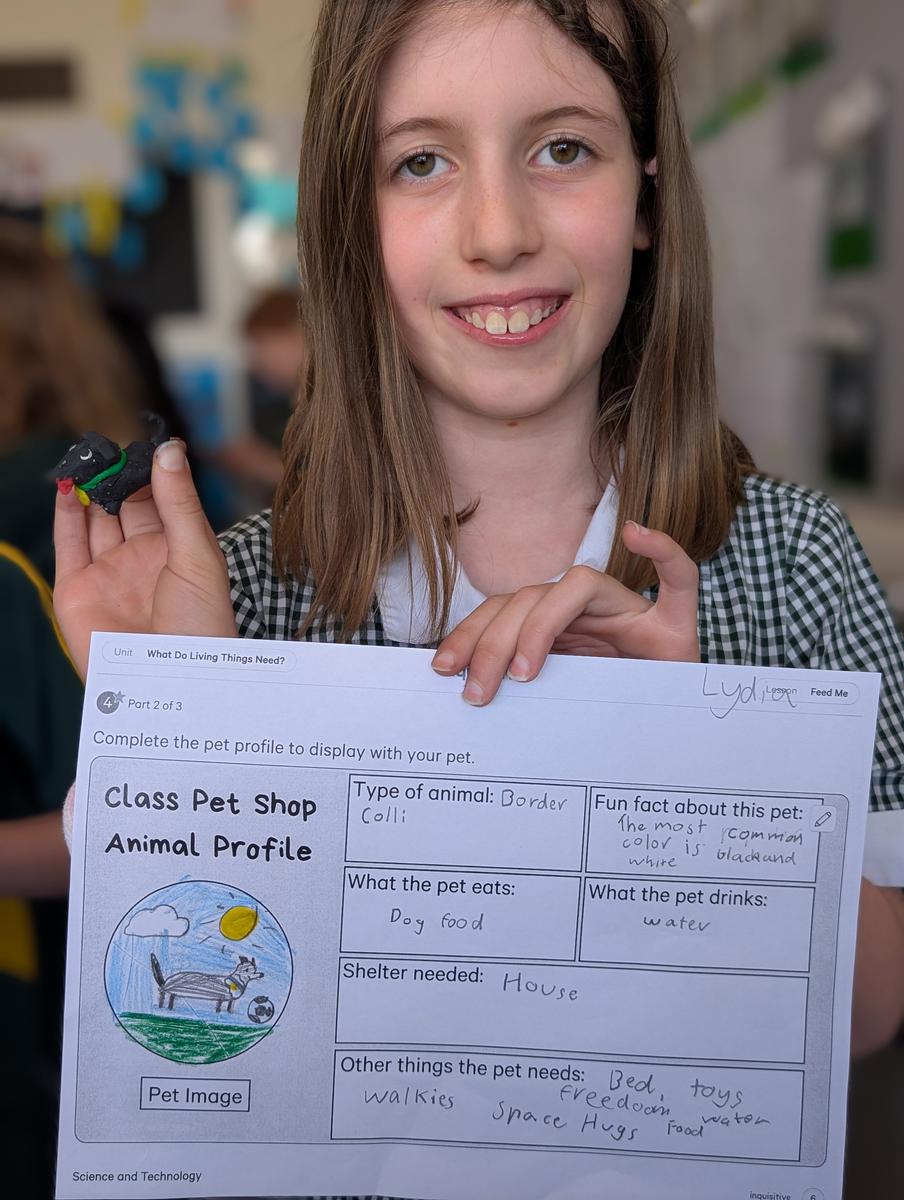 Unit What Do Living Things Need?
Lydia
Lesson Feed Me
4 Part 2 of 3
Complete the pet profile to display with your pet.
Class Pet Shop
Animal Profile
Pet Image
Type of animal: Border
Colli
Fun fact about this pet:
The most common
color is black and
white
What the pet eats:
Dog food
What the pet drinks:
water
Shelter needed: House
Other things the pet needs: Bed, toys
walkies freedoom water
Space Hugs Food
Science and Technology
inquisitive 6